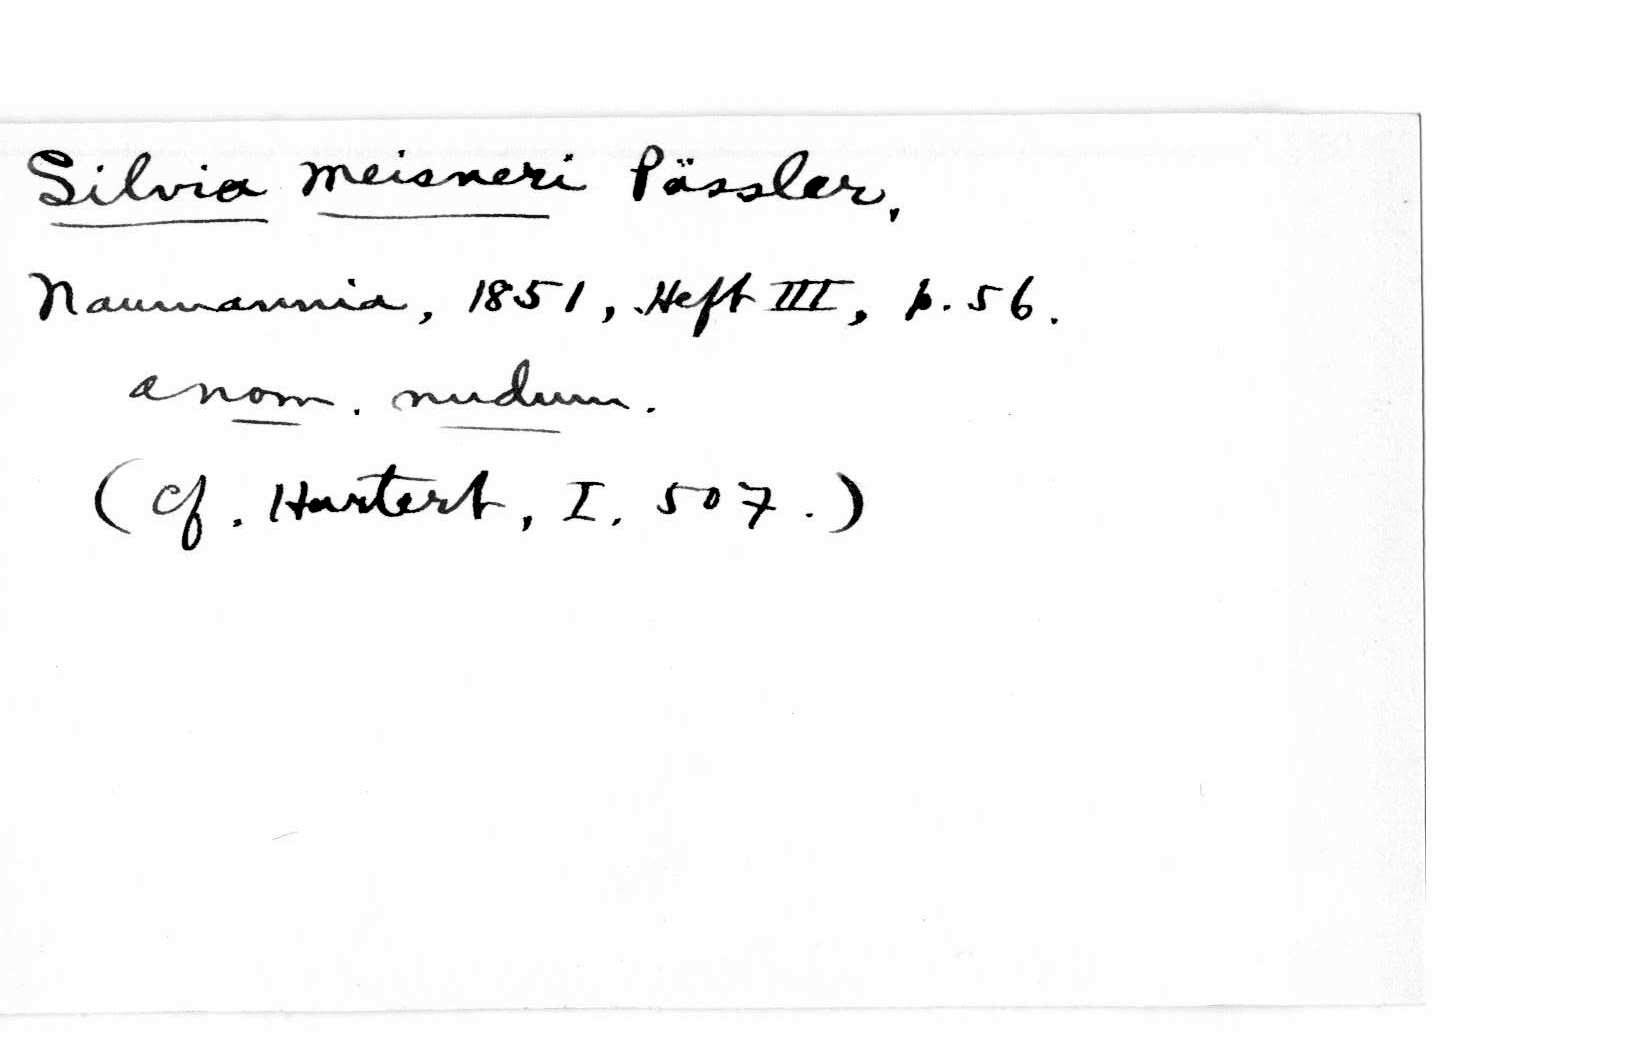 Silvia meisneri Pässler,
Naumannia, 1851, Heft III, p. 56.
a nom. nudum.
(cf. Hartert, I. 507.)